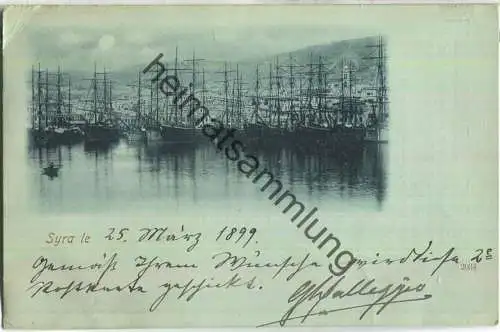 heimatsammlung.de
Syra le 25. März 1899.
Gemäß Ihrem Wunsche, wird diese 2te
Postkarte geschickt.